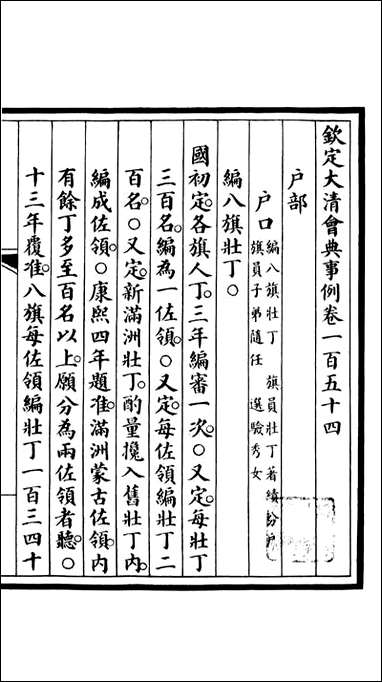 欽定大清會典事例卷一百五十四
户部
户口 編八旗壯丁 旗員壯丁著續分户
旗員子弟隨任 選驗秀女
編八旗壯丁○
國初定。各旗人丁。三年編審一次。○又定。每壯丁
三百名。編為一佐領。○又定。每佐領編壯丁二
百名。○又定。新滿洲壯丁。酌量攙入舊壯丁內。
編成佐領。○康熙四年題准。滿洲蒙古佐領。內
有餘丁多至百名以上。願分為兩佐領者。聽。○
十三年覆准。八旗每佐領編壯丁一百三四十